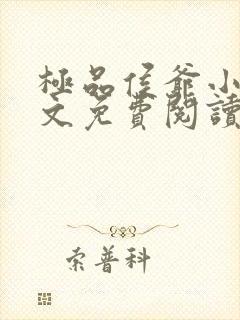 極品侯爺小
文免費閱讀
索普科